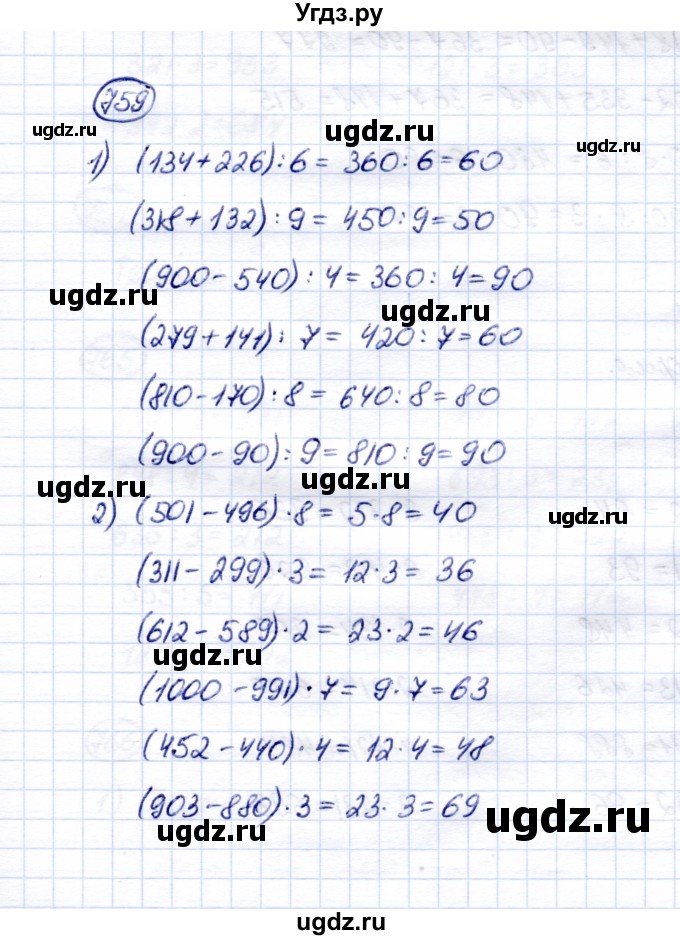 Угдз.ру
759
ugdz.ru
ugdz.ru
ugdz.ru
1) (134+226):6= 360:6=60
(318+132):9= 450:9=50
(900-540):4=360:4=90
ugdz.ru
ugdz.ru
(279+141):7= 420:7=60
(810-170):8=640:8=80
ugdz.ru
(900-90):9=810:9=90
ugdz.ru
ugdz.ru
2) (501-496)·8=5·8=40
ugdz.ru
(311-299)·3=12·3=36
(612-589)·2=23·2=46
ugdz.ru
ugdz.ru
(1000-991)·7=9·7=63
(452-440)·4=12·4=48
(903-880)·3=23·3=69
ugdz.ru
ugdz.ru
ugdz.ru